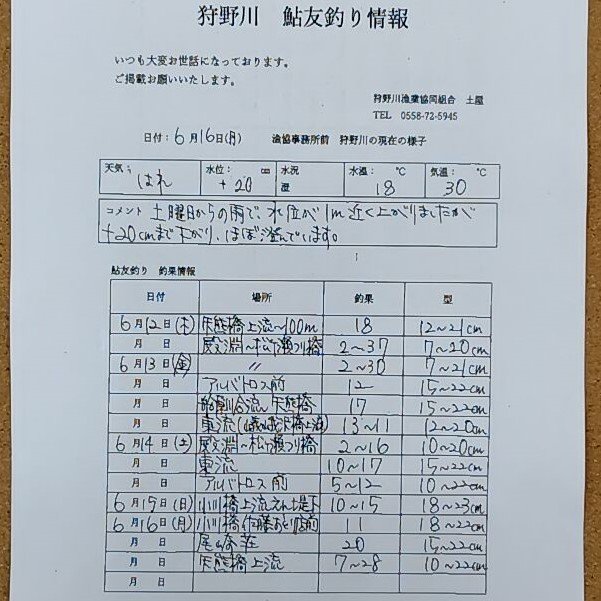 狩野川 鮎友釣り情報
いつも大変お世話になっております。
ご掲載お願いいたします。
狩野川漁業協同組合 土屋
TEL 0558-72-5945
日付：6月16日(月) 漁協事務所前 狩野川の現在の様子
天気： 水位： cm 水況 水温： ℃ 気温： ℃
はれ +20 澄 18 30
コメント 土曜日からの雨で、水位が1m近く上がりましたが
+20cmまで下がり、ほぼ澄んでいます。
鮎友釣り 釣果情報
日付 場所 釣果 型
6月12日(木) 矢熊橋上流〜100m 18 12〜21cm
月 日 殿淵〜松ケ瀬つり橋 2〜37 7〜20cm
6月13日(金) 〃 2〜30 7〜21cm
月 日 アルバトロス前 12 15〜22cm
月 日 合流〜矢熊橋 17 15〜22cm
月 日 東流 13〜11 12〜20cm
6月14日(土) 殿淵〜松ケ瀬つり橋 2〜16 10〜20cm
月 日 東流 10〜17 15〜22cm
月 日 アルバトロス前 5〜12 10〜22cm
6月15日(日) 小川橋上流えん堤下 10〜15 18〜23cm
6月16日(月) 小川橋佐藤おとり店前 11 18〜22cm
月 日 尾崎荘 20 15〜22cm
月 日 矢熊橋上流 7〜28 10〜22cm
月 日